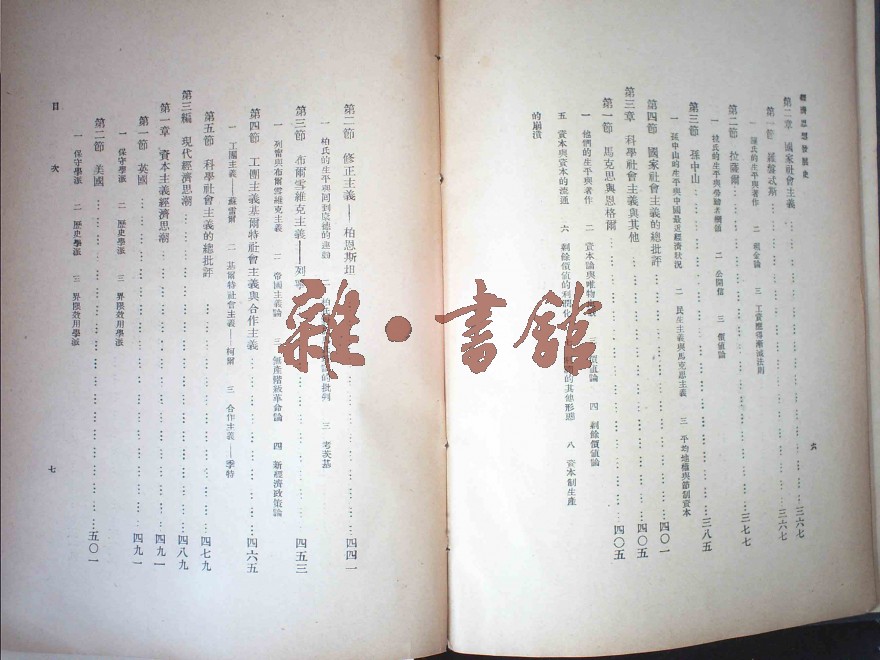 經濟思想發展史
第二章 國家社會主義……三六七
第一節 羅盤忒斯……三六七
一 生平與著作 二 現金論 三 工資遞減法則
第二節 拉薩爾……三七七
一 彼氏的生平與勞動者綱領 二 公開信 三 價值論
第三節 孫中山……三八五
一 孫中山的生平與中國最近經濟狀況 二 民生主義與馬克思主義 三 平均地權與節制資本
第四節 國家社會主義的總批評……四〇一
第三章 科學社會主義與其他……四〇五
第一節 馬克思與恩格爾……四〇五
一 他們的生平與著作 二 資本論與唯物 三 價值論 四 剩餘價值論
五 資本與資本的流通 六 剩餘價值的利潤化 的其他形態 八 資本制生產
的崩潰
六
第二節 修正主義——柏恩斯坦……四四一
一 柏氏的生平與回到康德的運動 二 柏 的批判 三 考茨基
第三節 布爾雪維克主義——列寧……四五三
一 列甯與布爾雪維克主義 二 帝國主義論 三 無產階級革命論 四 新經濟政策論
第四節 工團主義基爾特社會主義與合作主義……四六五
一 工團主義——蘇雷爾 二 基爾特社會主義——柯爾 三 合作主義——季特
第五節 科學社會主義的總批評……四七九
第三編 現代經濟思潮……四八九
第一章 資本主義經濟思潮……四九一
第一節 英國……四九一
一 保守學派 二 歷史學派 三 界限效用學派
第二節 美國……五〇一
一 保守學派 二 歷史學派 三 界限效用學派
目次
七
雜·書館